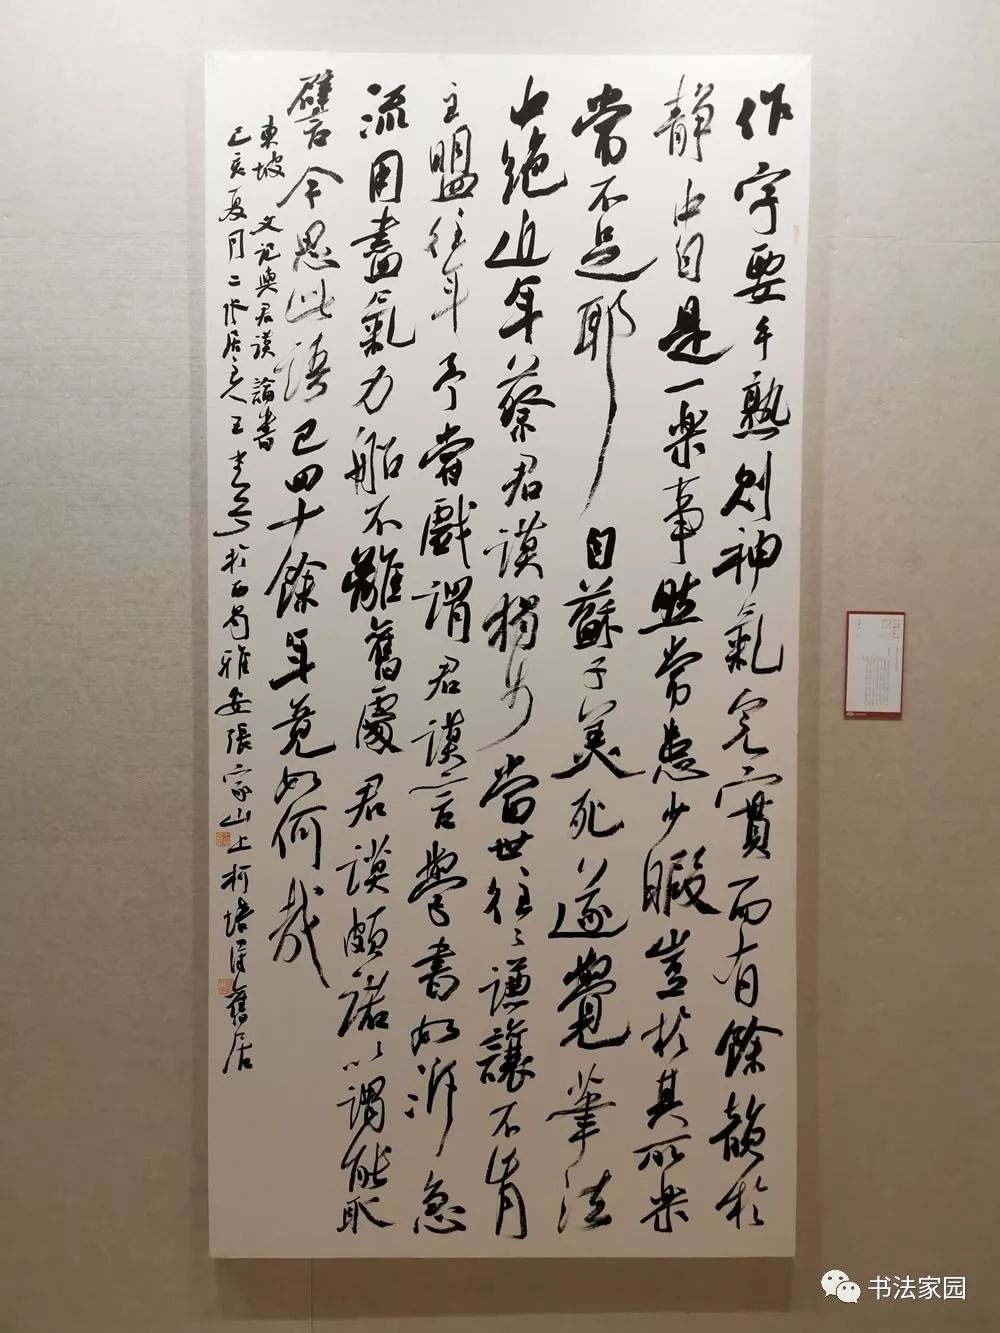 作字要手熟則神氣完實而有餘韻於
靜中自是一樂事然常患少暇豈於其所樂
常不足耶自蘇子美死遂覺筆法
中絕近年蔡君謨獨步當世往往謙讓不肯
主盟往年予嘗戲謂君謨言學書如泝急
流用盡氣力船不離舊處君謨頗諾以謂能取
譬今思此語已四十餘年竟如何哉
東坡文記與君謨論書
己亥夏月二
居主人王
於西蜀雅安張家山上柯培
舊居
书法家园